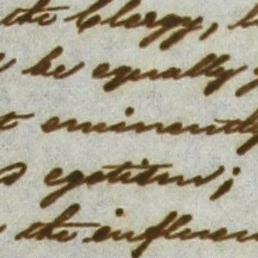 the Clergy,
be equally
eminently
egotism;
the influen